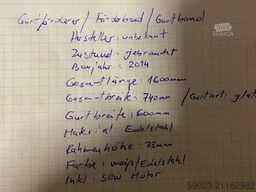 Gurtförderer / Förderband / Gurtband
Hersteller: unbekannt
Zustand: gebraucht
Baujahr: 2014
Gesamtlänge: 1600mm
Gesamtbreite: 740mm / Gurtart: glatt
Gurtbreite: 600mm
Material: Edelstahl
Rahmenhöhe: 75mm
Farbe: weiß/Edelstahl
Inkl: SEW Motor
59023-21162982